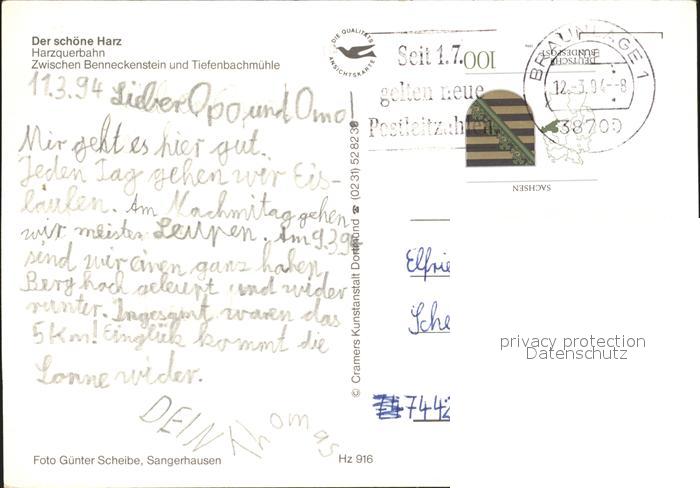 Der schöne Harz
Harzquerbahn
Zwischen Benneckenstein und Tiefenbachmühle
11.3.94 Lieber Opo und Omo!
Mir geht es hier gut.
Jeden Tag gehen wir Eis-
laufen. Am Nachmitag gehen
wir meisten Leupen. Am 9.3.94
sind wir einen ganz hohen
Berg hoch geleupt und wider
runter. Ingesamt waren das
5 Km! Einglük kommt die
Sonne wider.
DEIN Thomas
Foto Günter Scheibe, Sangerhausen
Hz 916
© Cramers Kunstanstalt Dortmund ☎ (0231) 528238
DIE QUALITÄTS
ANSICHTSKARTE
Seit 1.7.
gelten neue
Postleitzahlen
100
DEUTSCHE
BUNDESPOST
SACHSEN
BRAUNLAGE 1
12.-3.94--8
38700
Elfrie
Sche
privacy protection
Datenschutz
7442